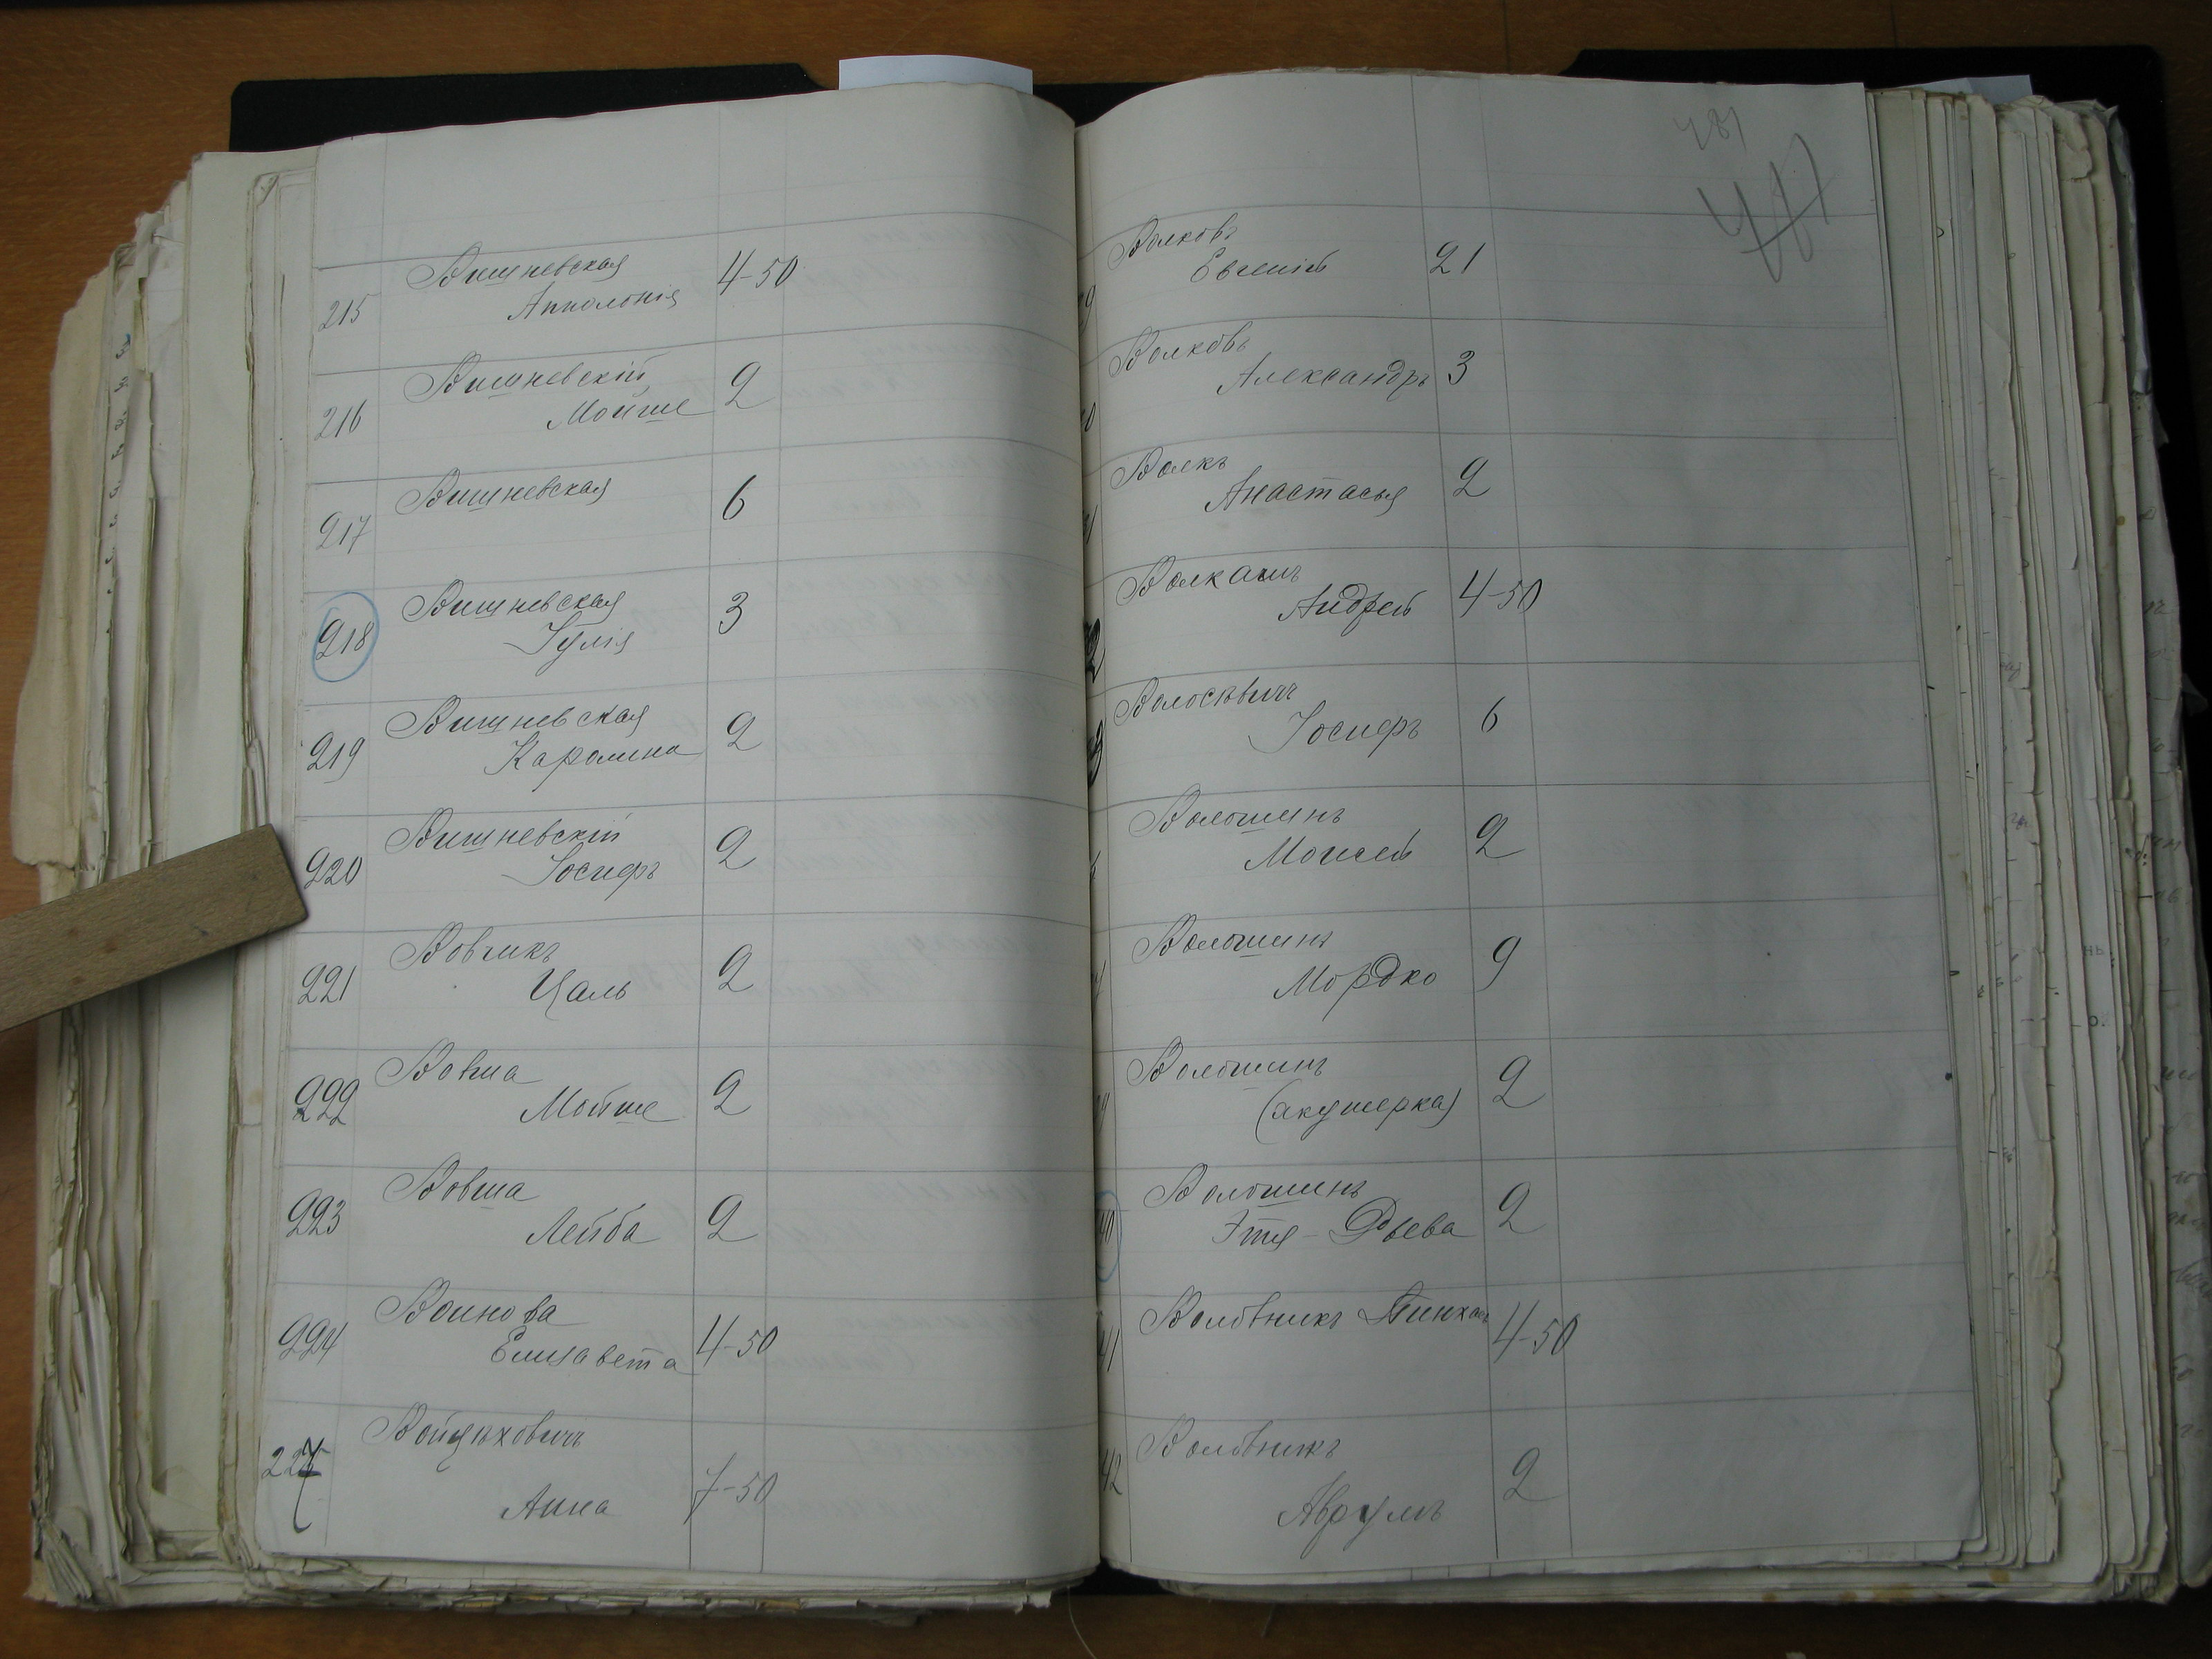 Вишневская 4-50
215 Апполонія
Вишневскій 2
216 Мойше
Вишневская 6
217
Вишневская 3
218 Іулія
Вишневская 2
219 Каролина
Вишневскій 2
220 Іосифъ
Вовчикъ 2
221 Цаль
Вовша 2
222 Мойше
Вовша 2
223 Лейба
Воинова 4-50
224 Елизавета
Войцѣховичъ
227 Анна 7-50
481
481
Волковъ
Евгеній 21
Волковъ
Александръ 3
Волкъ
Анастасья 2
Андрей 4-50
Іосифъ 6
Волошинъ
Моисей 2
Волошинъ
Мордко 9
Волошинъ
(акушерка) 2
Волошинъ
Этя - Двева 2
Воловникъ Пинхасъ 4-50
41
Воловникъ 2
42 Аврумъ